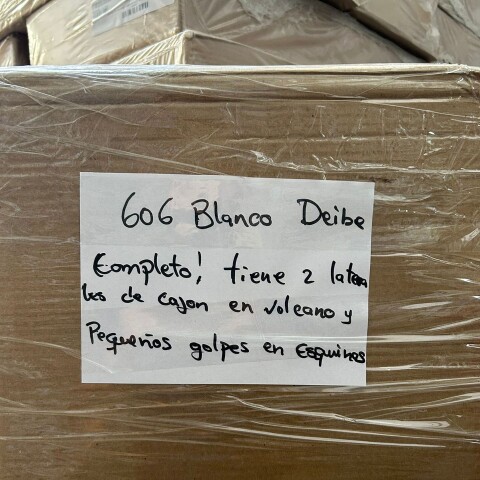 606 Blanco Deibe
Completo! tiene 2 latera
les de cajon en volcano y
Pequeños golpes en Esquinas